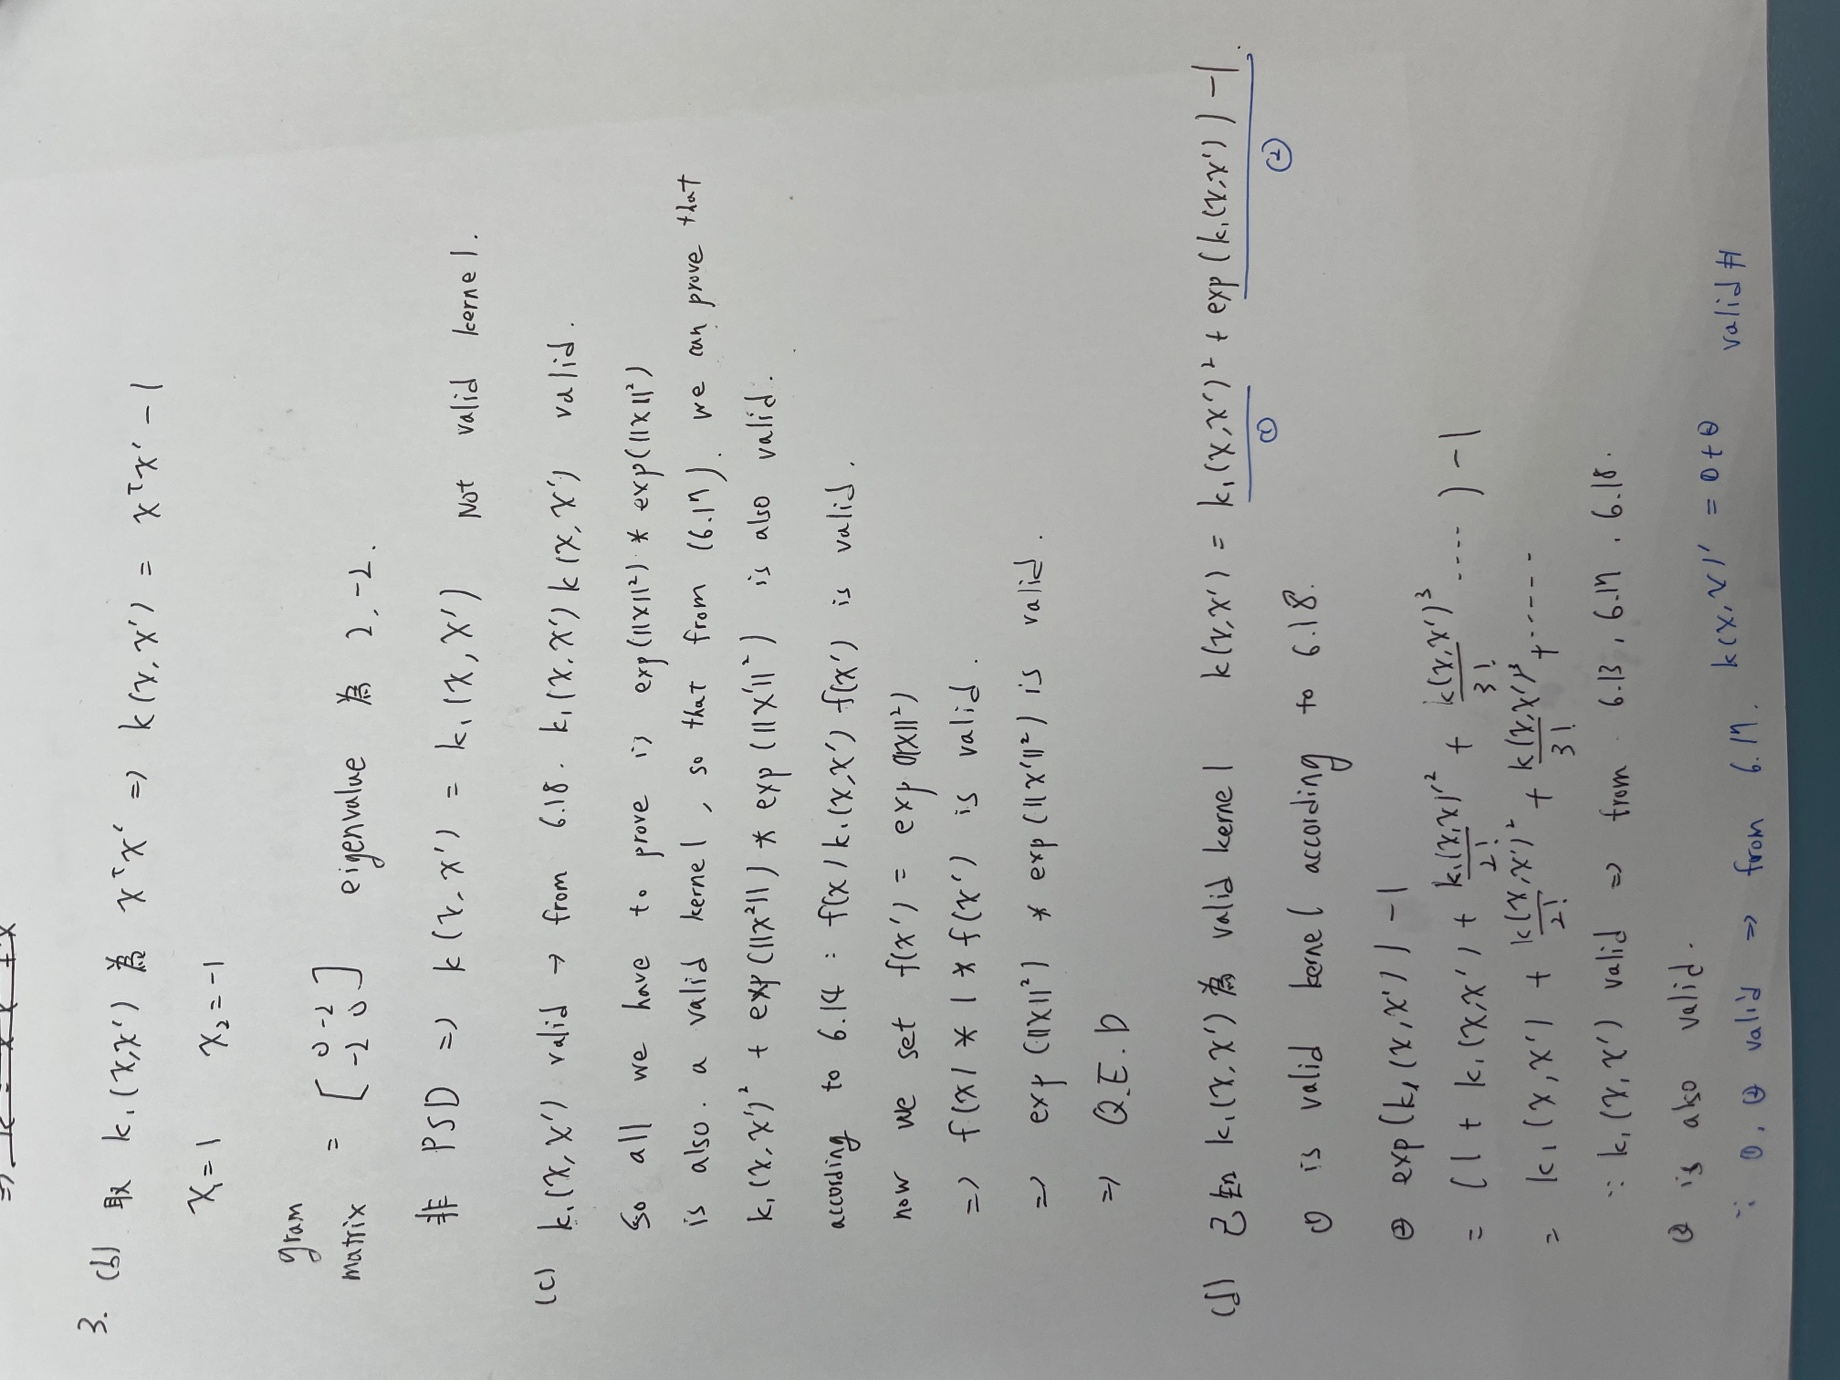 3. (b) 取 k₁(x,x') 為 xᵀx' => k(x,x') = xᵀx' - 1
x₁=1 x₂=-1
gram matrix = [0 -2
-2 0] eigenvalue 為 2, -2.
非 PSD => k(x,x') = k₁(x,x') Not valid kernel.
(c) k₁(x,x') valid → from 6.18. k₁(x,x') k(x,x') valid.
So all we have to prove is exp(||x||²) * exp(||x||²)
is also a valid kernel, so that from (6.17). we can prove that
k₁(x,x')² + exp(||x²||) * exp(||x'||²) is also valid.
according to 6.14 : f(x) k₁(x,x') f(x') is valid.
now we set f(x') = exp(||x||²)
=> f(x) * 1 * f(x') is valid.
=> exp(||x||²) * exp(||x'||²) is valid.
=> Q.E.D
(d) 已知 k₁(x,x') 為 valid kernel k(x,x') = k₁(x,x')² + exp(k₁(x,x')) - 1.
① ②
① is valid kernel according to 6.18.
② exp(k₁(x,x')) - 1
= (1 + k₁(x,x') + k₁(x,x)'²/2! + k(x,x')³/3! ....) - 1
= k₁(x,x') + k(x,x')²/2! + k(x,x')³/3! + .....
∵ k₁(x,x') valid => from 6.13, 6.17, 6.18.
② is also valid.
∵ ①, ② valid => from 6.17. k(x,x)' = ①+② valid #